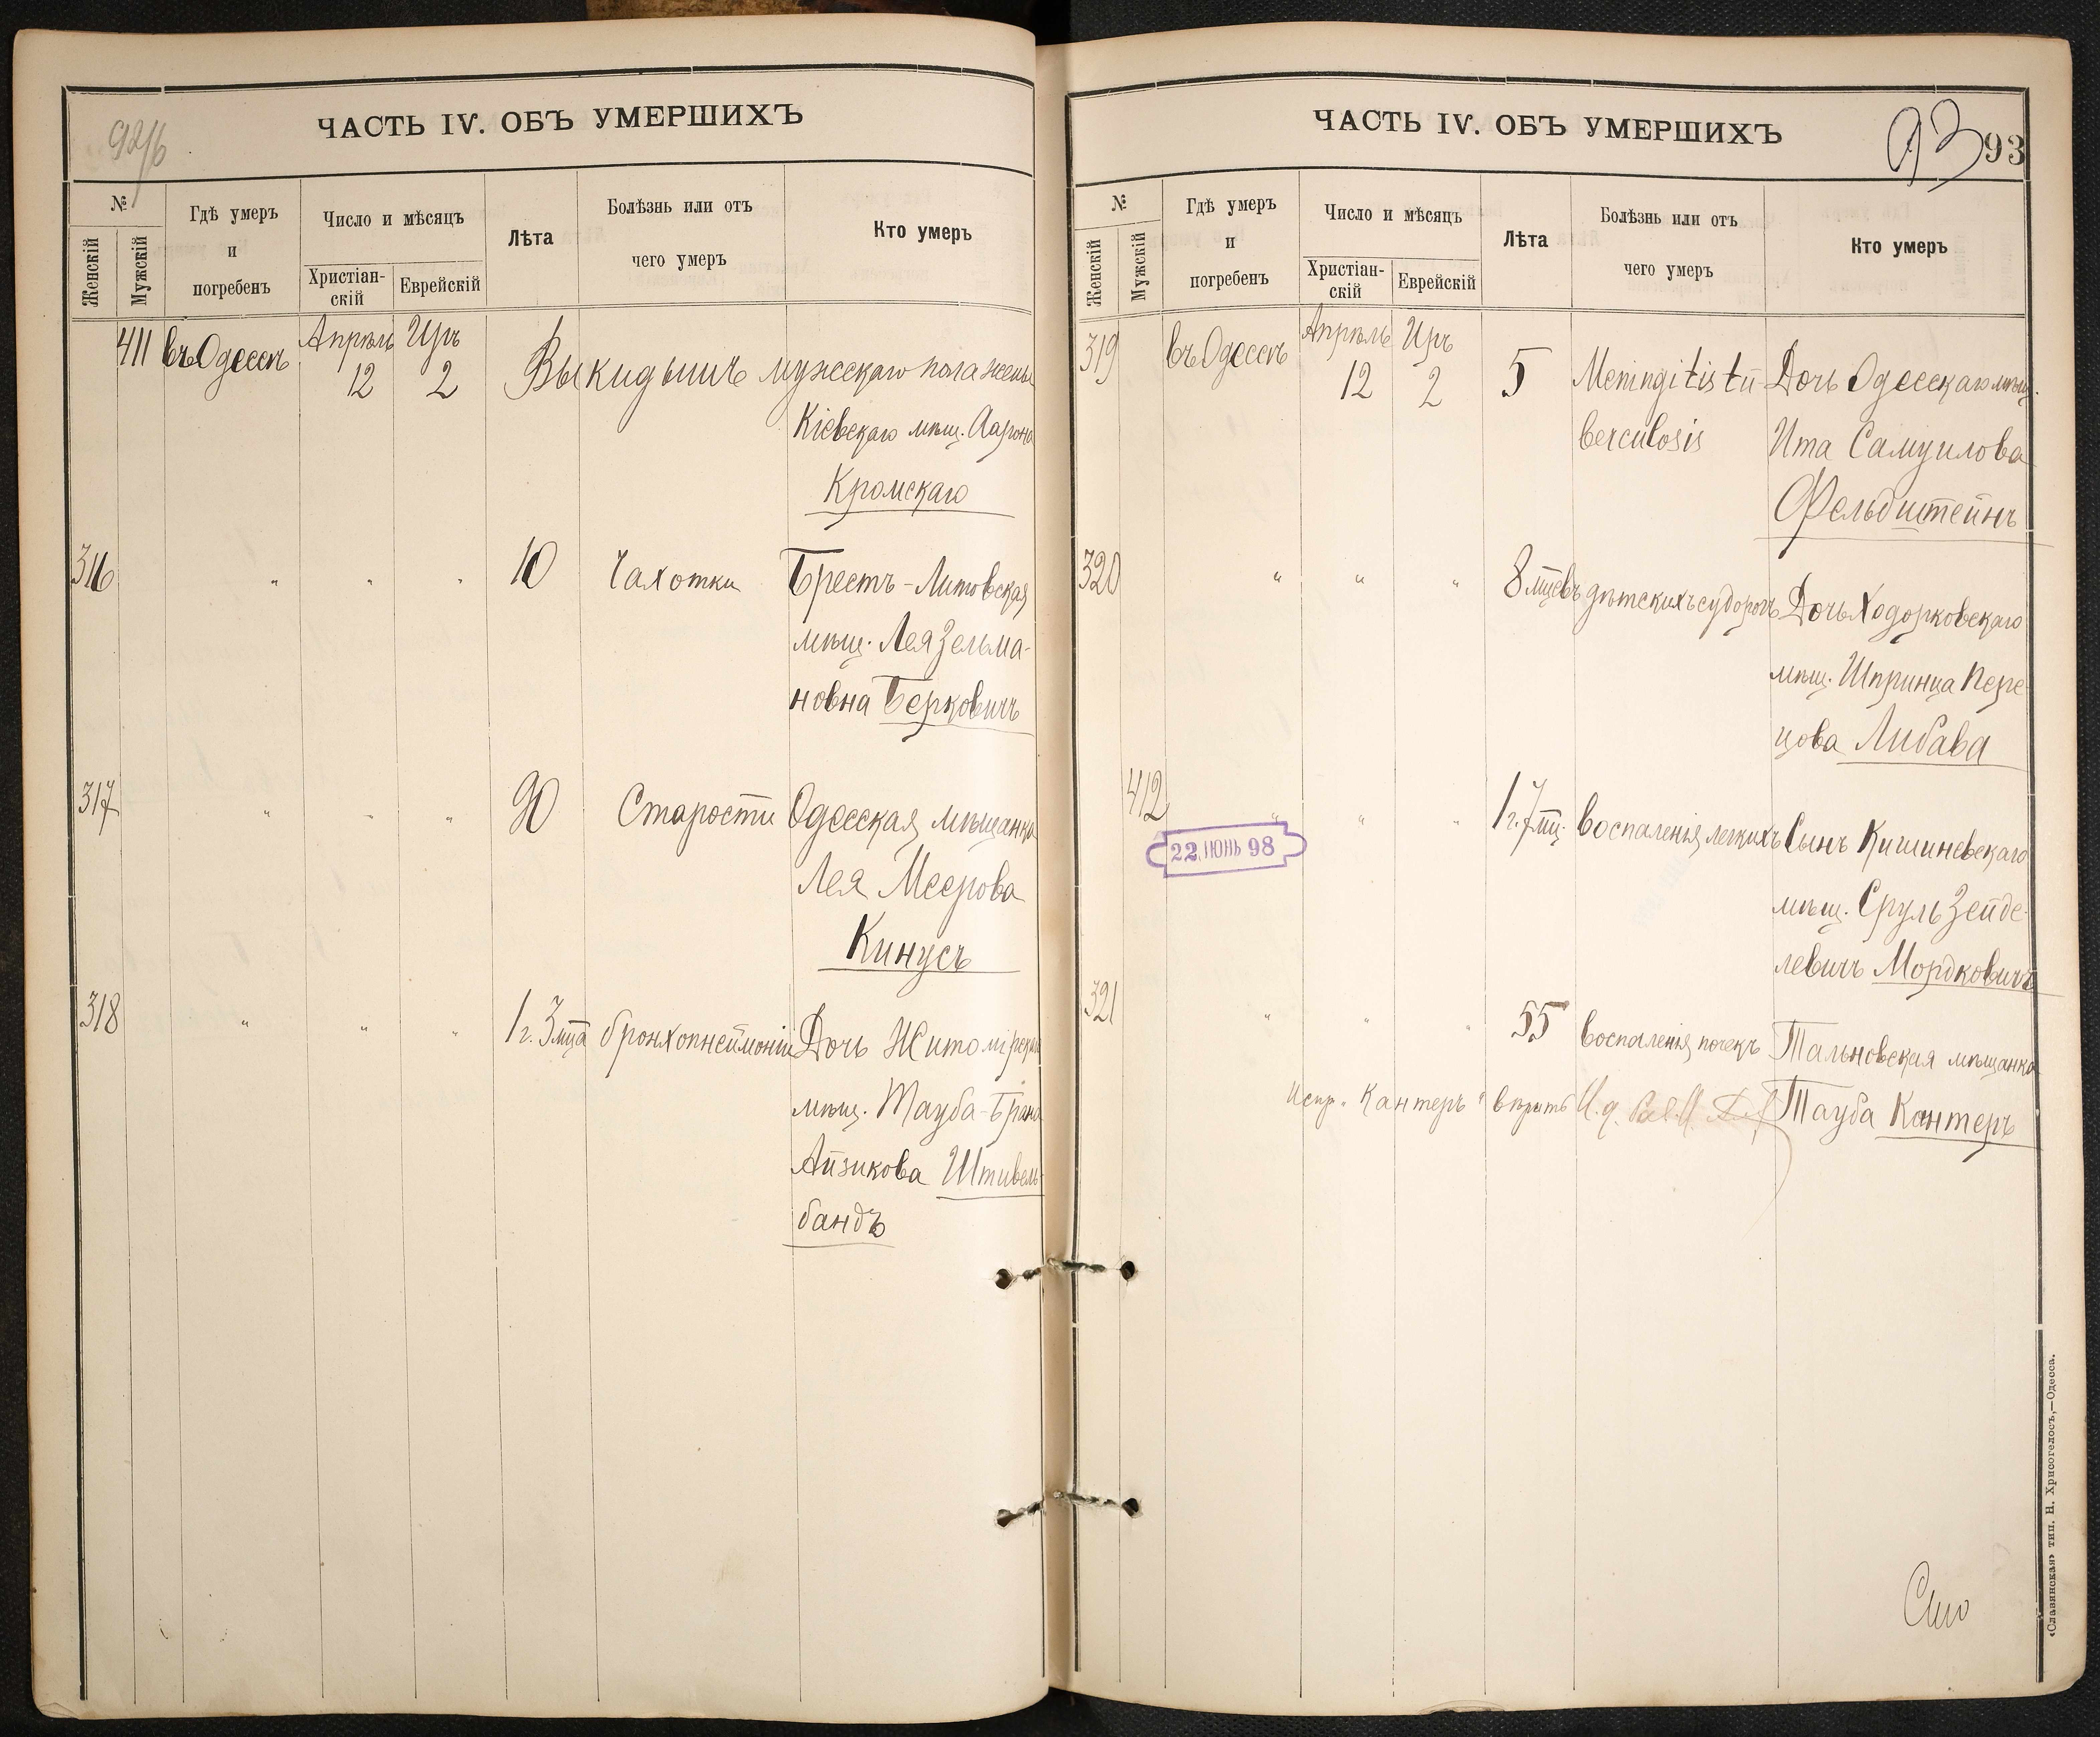 92/б
ЧАСТЬ IV. ОБЪ УМЕРШИХЪ
№
Женскій
Мужскій
Гдѣ умеръ
и
погребенъ
Число и мѣсяцъ
Христіан-
скій
Еврейскій
Лѣта
Болѣзнь или отъ
чего умеръ
Кто умеръ
411 въ Одессѣ Апрѣль Иръ
12 2 Выкидышъ мужескаго пола жены
Кіевскаго мѣщ. Аарона
Кромскаго
316 " " " 10 Чахотки Брестъ-Литовская
мѣщ. Лея Зельма-
новна Берковичъ
317 " " " 90 Старости Одесская мѣщанка
Лея Меерова
Кинусъ
318 " " " 1 г. 3 мца бронхопнеймоніи Дочь Житомірскаго
мѣщ. Тауба-Брана
Айзикова Штивель-
бандъ
ЧАСТЬ IV. ОБЪ УМЕРШИХЪ
93 93
№
Женскій
Мужскій
Гдѣ умеръ
и
погребенъ
Число и мѣсяцъ
Христіан-
скій
Еврейскій
Лѣта
Болѣзнь или отъ
чего умеръ
Кто умеръ
319 въ Одессѣ Апрѣль Иръ
12 2 5 Meningitis tu- Дочь Одесскаго мѣщ.
berculosis Ита Самуилова
Фельдштейнъ
320 " " " 8 мцевъ дѣтскихъ судорогъ Дочь Ходорковскаго
мѣщ. Шпринца Пере-
цова Либава
412 " " " 1 г. 7 мц. воспаленія легкихъ Сынъ Кишиневскаго
22 ІЮНЬ 98
мѣщ. Сруль Зейде-
левичъ Мордковичъ
321 " " " 55 воспаленія почекъ Тальновская мѣщанка
Испр. "Кантеръ" вѣрить И. д. Тауба Кантеръ
«Славянская» тип. Н. Хрисогелосъ,—Одесса.